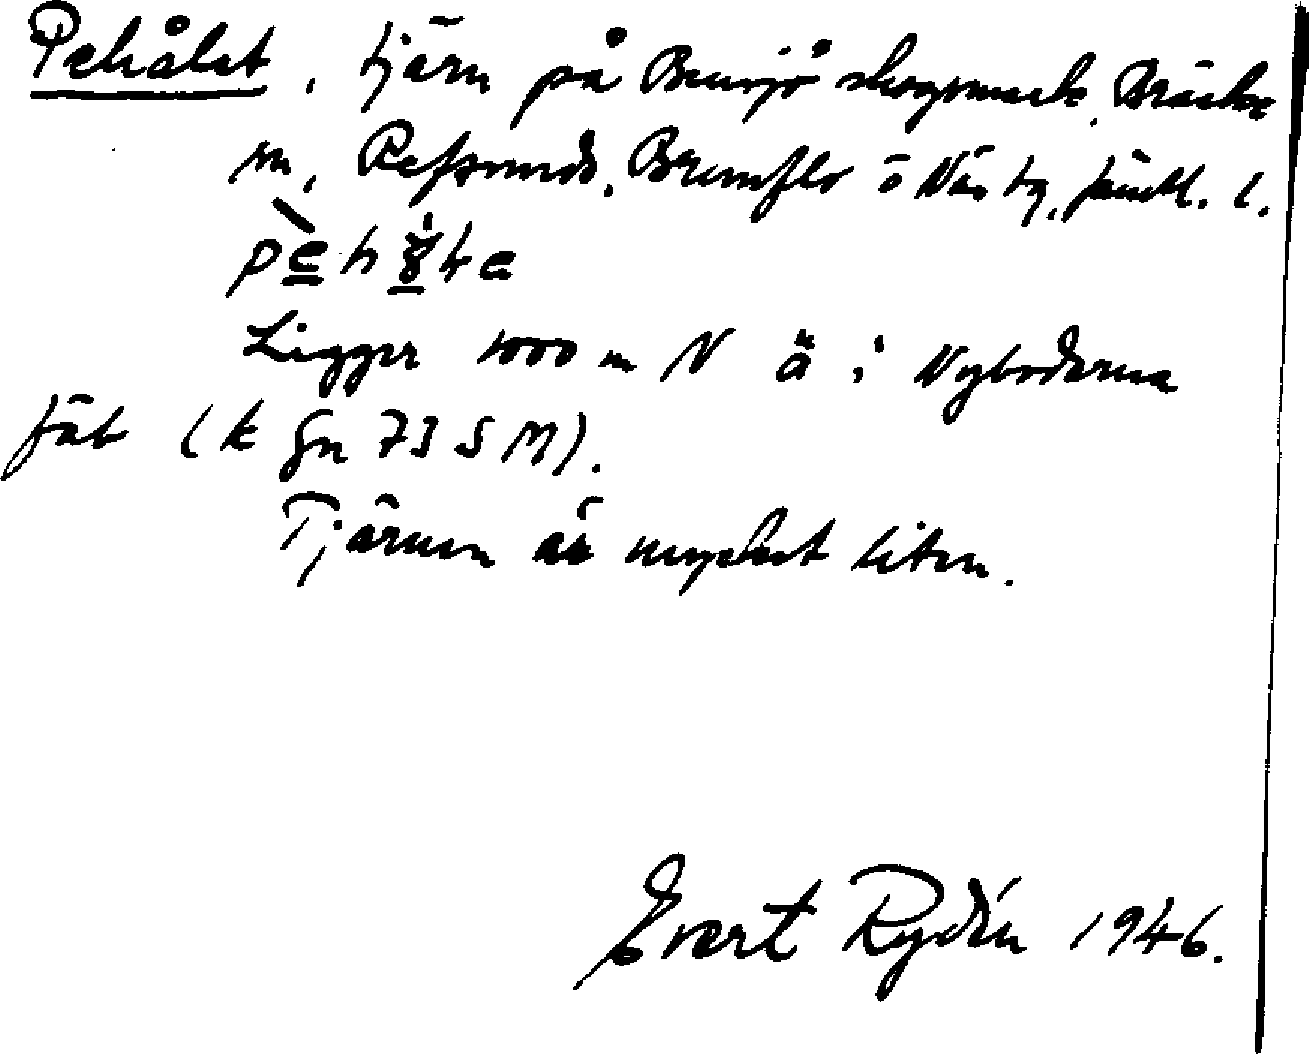 Pehålet, tjärn på Bensjö skogsmark, Bräcke
sn, Refsunds, Brunflo o Näs tg, Jämtl. l.
Ligger 1000 m N ä i Nybodarna
fäb (k Gn 73 5 M).
Tjärnen är mycket liten.
Evert Rydén 1946.